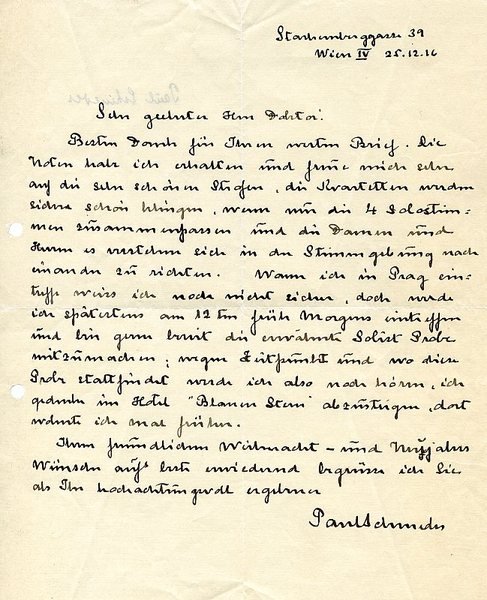 Starhemberggasse 39
Wien IV 25.12.16
Sehr geehrter Herr Doktor!
Besten Dank für Ihren werten Brief. Die
Noten habe ich erhalten und freue mich sehr
auf die sehr schönen Strofen, die Kvartetten werden
sicher schön klingen, wenn nur die 4 Solostim=
men zusammenpassen und die Damen und
Herrn es verstehen sich in der Stimmgebung nach
einander zu richten. Wann ich in Prag ein=
treffe weiss ich noch nicht sicher, doch werde
ich spätestens am 12ten früh Morgens eintreffen
und bin gerne bereit die erwähnte Solist Probe
mitzumachen; wegen Zeitpunkt und wo diese
Probe stattfindet werde ich also noch hören, ich
gedenke im Hotel "Blauen Stern" abzusteigen, dort
wohnte ich mal früher.
Ihren freundlichen Weihnacht- und Neujahrs
Wünschen aufs beste erwiedernd begrüsse ich Sie
als Ihr hochachtungsvoll ergebener
Paul Schmedes